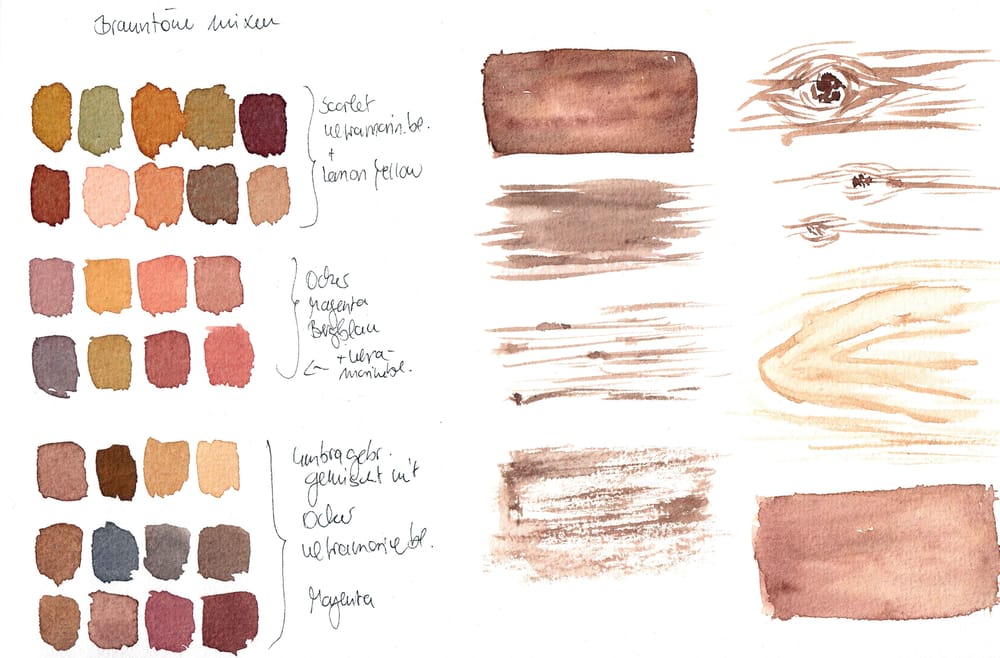 Brauntöne mixen
Scarlet
ultramarin.bl.
+
Lemon Yellow
Ocker
Magenta
Bergblau
+ ultra-
marinebl.
umbra gebr.
gemischt mit
Ocker
ultramarinebl.
Magenta